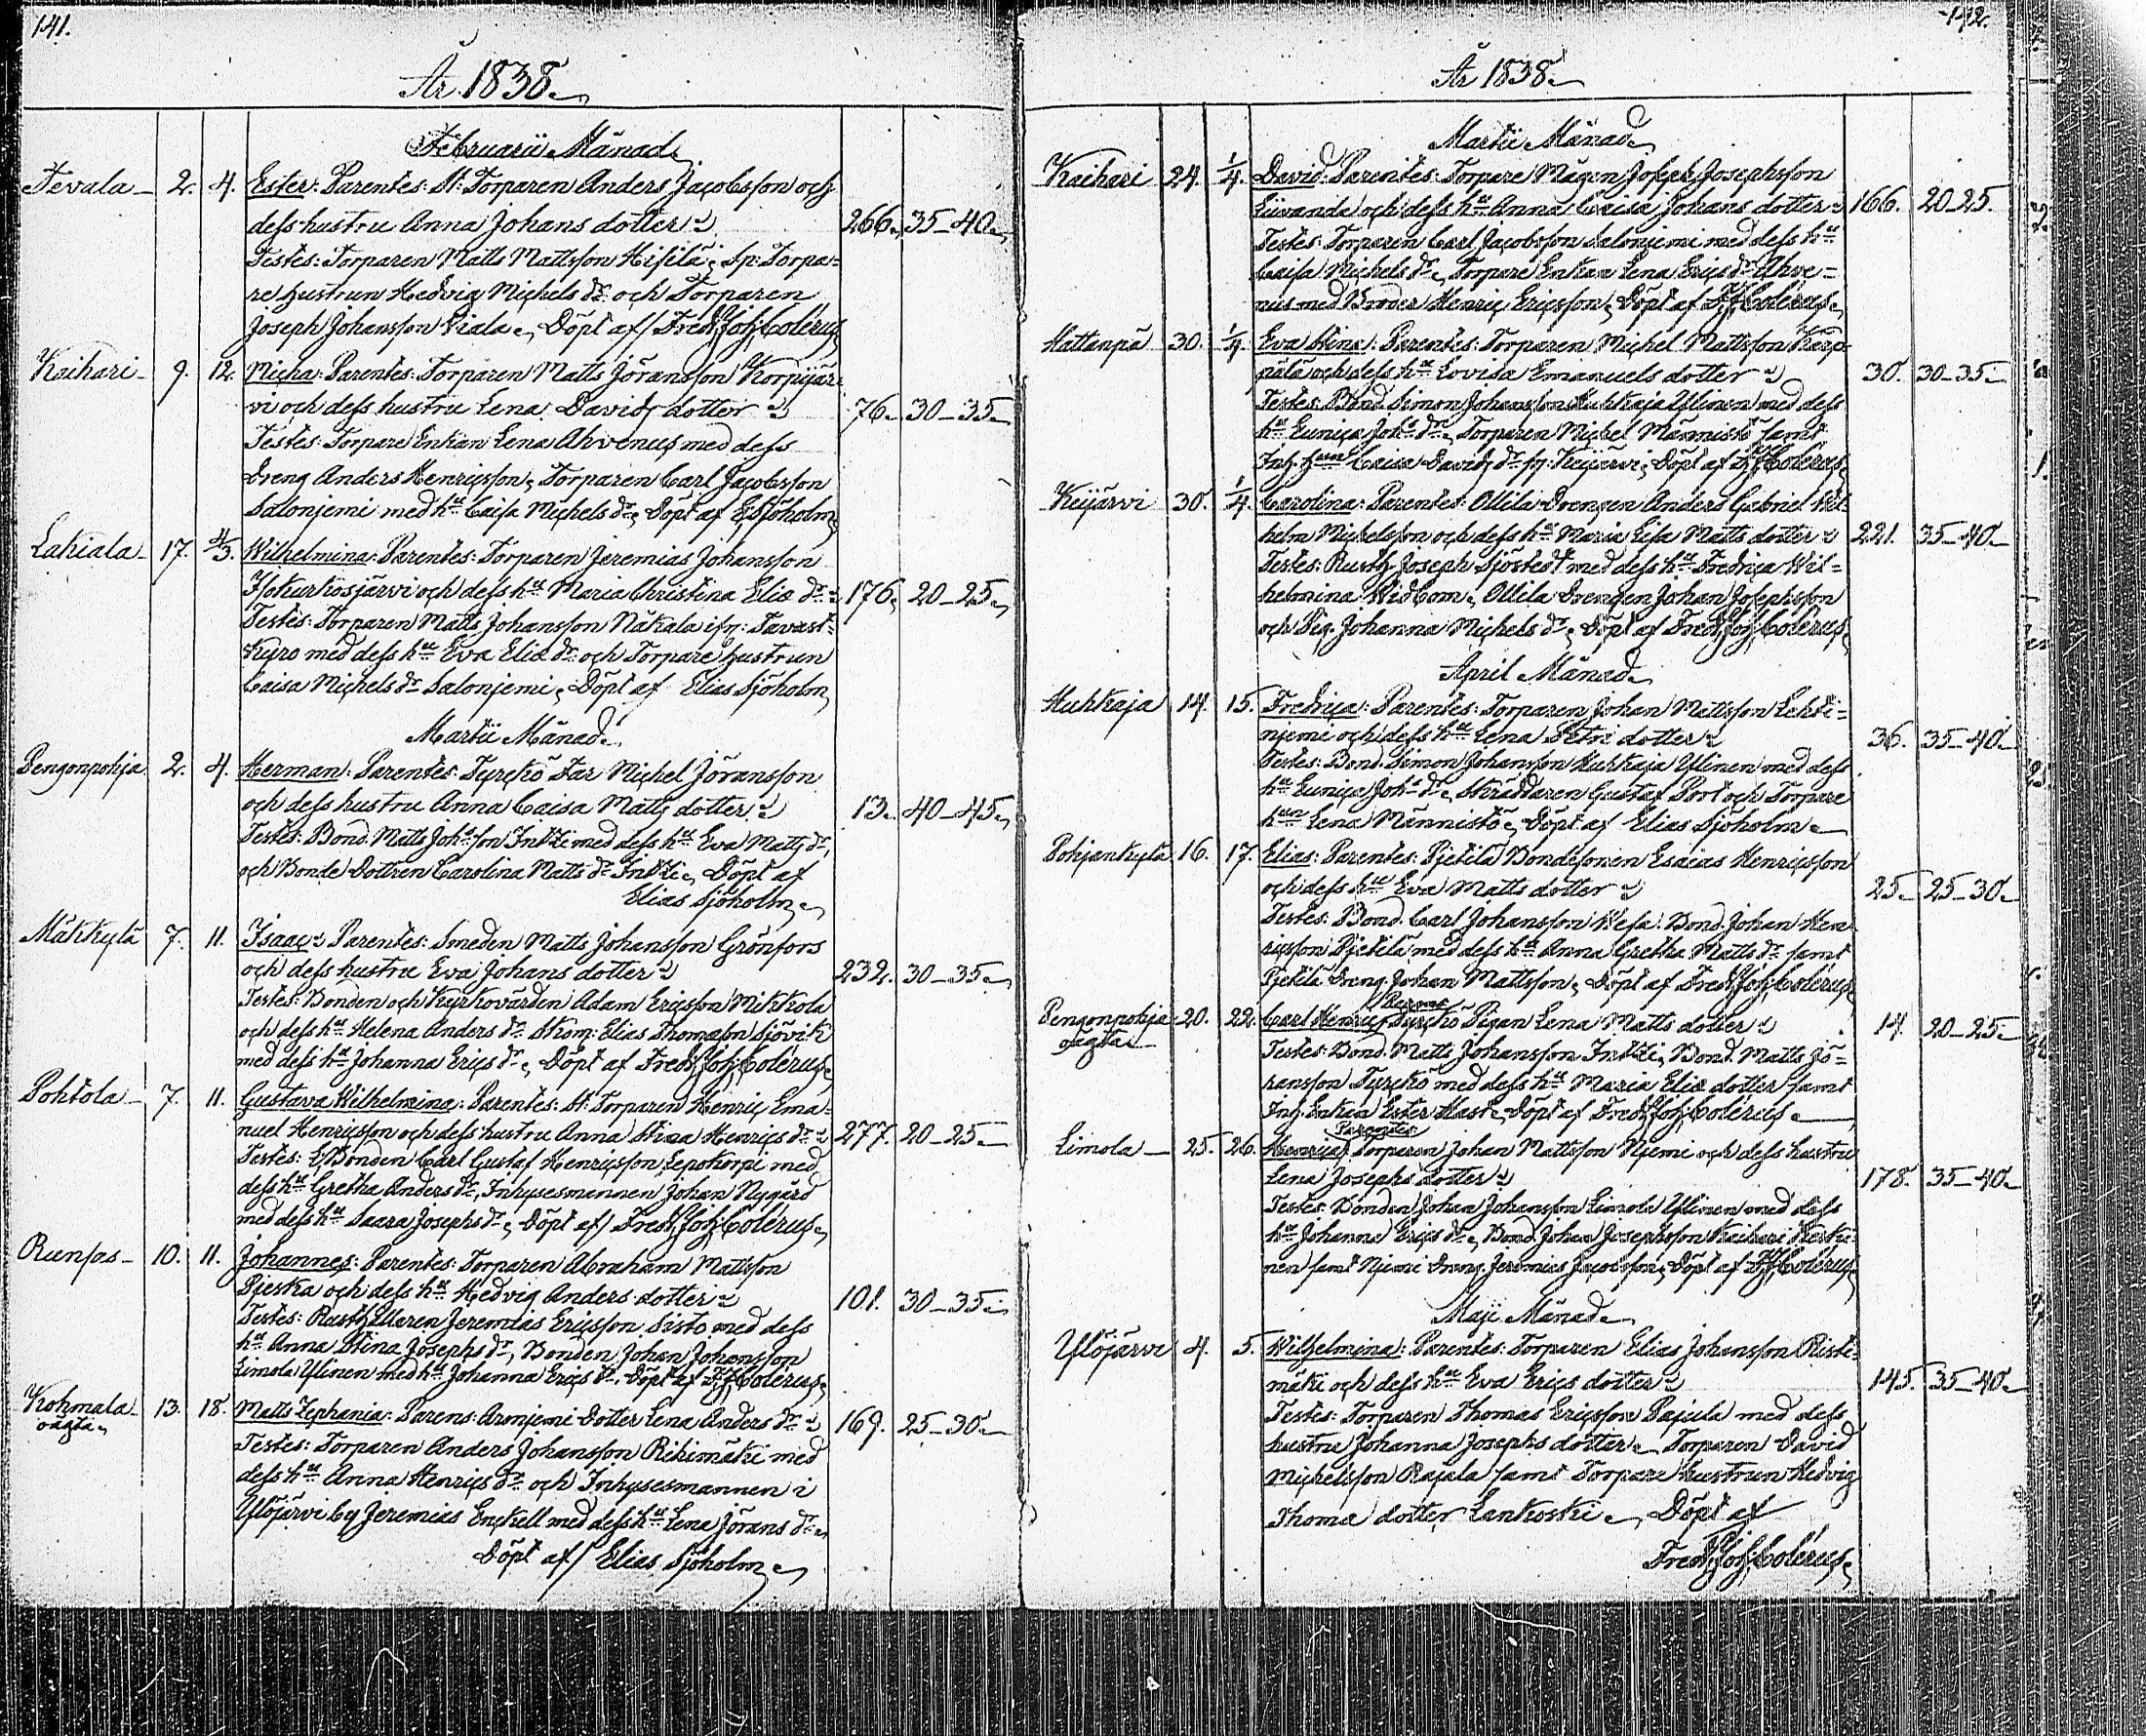 141.
År 1838.
Februarii Månad.
Tevala 2. 4. Ester: Parentes: St: Torparen Anders Jacobsson och
dess hustru Anna Johans dotter 266. 35-40.
Testes: Torparen Matts Mattsson Hisilä, Sp: Torpa-
re hustrun Hedvig Michels dr. och Torparen
Joseph Johansson Viala. Döpt af/ Fredr: Joh: Colérus.
Kaihari 9. 12. Micha: Parentes: Torparen Matts Jöransson Korpijär-
vi och dess hustru Lena Davids dotter 76. 30-35.
Testes: Torpare Enkan Lena Ahvenus med dess
Dreng Anders Henricsson, Torparen Carl Jacobsson
Salonjemi med hu Caisa Michels dr. Döpt af E. Sjöholm.
Lakiala 17. 4/3. Wilhelmina: Parentes: Torparen Jeremias Johansson
Isokurkosjärvi och dess hu Maria Christina Eliæ dr. 176. 20-25.
Testes: Torparen Matts Johansson Näkala ifr: Tavast-
Kyro med dess hu Eva Eliæ dr. och Torpare hustrun
Caisa Michels dr Salonjemi. Döpt af Elias Sjöholm
Martii Månad.
Pengonpohja 2. 4. Herman: Parentes: Tyrckö Far Michel Jöransson
och dess hustru Anna Caisa Matts dotter 13. 40-45.
Testes: Bond. Matts Johsson Intti med dess hu Eva Matts dr,
och Bonde Dottren Carolina Matts dr Intti. Döpt af
Elias Sjöholm.
Mäkkylä 7. 11. Isaac: Parentes: Smeden Matts Johansson Grönfors
och dess hustru Eva Johans dotter 232. 30-35.
Testes: Bonden och Kyrkovärden Adam Ericsson Mikkola
och dess hu Helena Anders dr. Skom: Elias Thomasson Sjövik
med dess hu Johanna Erics dr. Döpt af Fredr: Joh: Colérus.
Pohtola 7. 11. Gustava Wilhelmina: Parentes: St: Torparen Henric Ema-
nuel Henricsson och dess hustru Anna Stina Henrics dr. 277. 20-25.
Testes: Bonden Carl Gustaf Henricsson Lepokorpi med
dess hu Gretha Anders dr, Inhysesmannen Johan Nygård
med dess hu Saara Josephs dr. Döpt af/ Fredr: Joh: Colérus.
Runsas 10. 11. Johannes: Parentes: Torparen Abraham Mattsson
Pjeska och dess hu Hedvig Anders dotter 101. 30-35.
Testes: Rusthållaren Jeremias Ericsson Sisto med dess
hu Anna Stina Josephs dr, Bonden Johan Johansson
Limola Ylinen med hu Johanna Erics dr. Döpt af F: J: Colérus.
Kohmala 13. 18. Matts Zephania: Parens: Aronjemi Dotter Lena Anders dr. 169. 25-30.
oägta.
Testes: Torparen Anders Johansson Rihimäki med
dess hu Anna Henrics dr. och Inhysesmannen i
Ylöjärvi by Jeremias Enckell med dess hu Lena Jörans dr.
Döpt af/ Elias Sjöholm.
142.
År 1838.
Martii Månad.
Kaihari 24. 1/4. David: Parentes: Torpare Mågen Joseph Josephsson
Liivanda och dess hu Anna Caisa Johans dotter 166. 20-25.
Testes: Torparen Carl Jacobsson Salonjemi med dess hu
Caisa Michels dr. Torpare Enkan Lena Erics dr Ahve-
nus med Broder Henric Ericsson. Döpt af F: J: Colérus.
Hattanpä 30. 1/4. Eva Stina: Parentes: Torparen Michel Mattsson Karp-
pälä och dess hu Lovisa Emanuels dotter 30. 30-35.
Testes: Bond. Simon Johansson Huhkaja Ylinen med dess
hu Eunica Johs dr. Torparen Michel Männistö samt
Inh: hun Caisa Davids dr fr: Keijärvi. Döpt af F: J: Colérus.
Keijärvi 30. 1/4. Carolina: Parentes: Ollila Drengen Anders Gabriel Wil-
helm Michelsson och dess hu Maria Lisa Matts dotter 221. 35-40.
Testes: Rusth. Joseph Sjöstedt med dess hu Fredrica Wil-
helmina Widbom. Ollila Drengen Johan Josephsson
och Pig: Johanna Michels dr. Döpt af Fredr: Joh: Colérus.
April Månad.
Huhkaja 14. 15. Fredrica: Parentes: Torparen Johan Mattsson Lehti-
njemi och dess hu Lena Petri dotter 36. 35-40.
Testes: Bond. Simon Johansson Huhkaja Ylinen med dess
hu Eunica Johs dr. Skräddaren Gustaf Port och Torpare
hun Lena Männistö. Döpt af Elias Sjöholm.
Pohjankylä 16. 17. Elias: Parentes: Pjetilä Bondesonen Esaias Henricsson
och dess hu Eva Matts dotter 25. 25-30.
Testes: Bond. Carl Johansson Wesa. Bond. Johan Hen-
ricsson Pjetilä med dess hu Anna Gretha Matts dr. samt
Pjetilä Dreng. Johan Mattsson. Döpt af Fredr: Joh: Colérus.
Parens:
Pengonpohja 20. 22. Carl Henric Tyrckö Pigan Lena Matts dotter 14. 20-25.
oägta
Testes: Bond. Matts Johansson Intti, Bond. Matts Jö-
ransson Tyrckö med dess hu Maria Eliæ dotter samt
Inh. Enkia Ester Mast. Döpt af Fredr: Joh: Colérus.
Parentes:
Limola 25. 26. Henrica Torparen Johan Mattsson Njemi och dess hustru
Lena Josephs dotter 178. 35-40.
Testes: Bonden Johan Johansson Limola Ylinen med dess
hu Johanna Erics dr. Bond. Johan Josephsson Kaihari Keski-
nen samt Njemi Dreng. Jeremias Jacobsson. Döpt af F: J: Colérus.
Maji Månad.
Ylöjärvi 4. 5. Wilhelmina: Parentes: Torparen Elias Johansson Risti-
mäki och dess hu Eva Erics dotter 145. 35-40.
Testes: Torparen Thomas Ericsson Pajula med dess
hustru Johanna Josephs dotter. Torparen David
Michelsson Rajala samt Torpare hustrun Hedvig
Thoma dotter Lankoski. Döpt af
Fredr: Joh: Colérus.